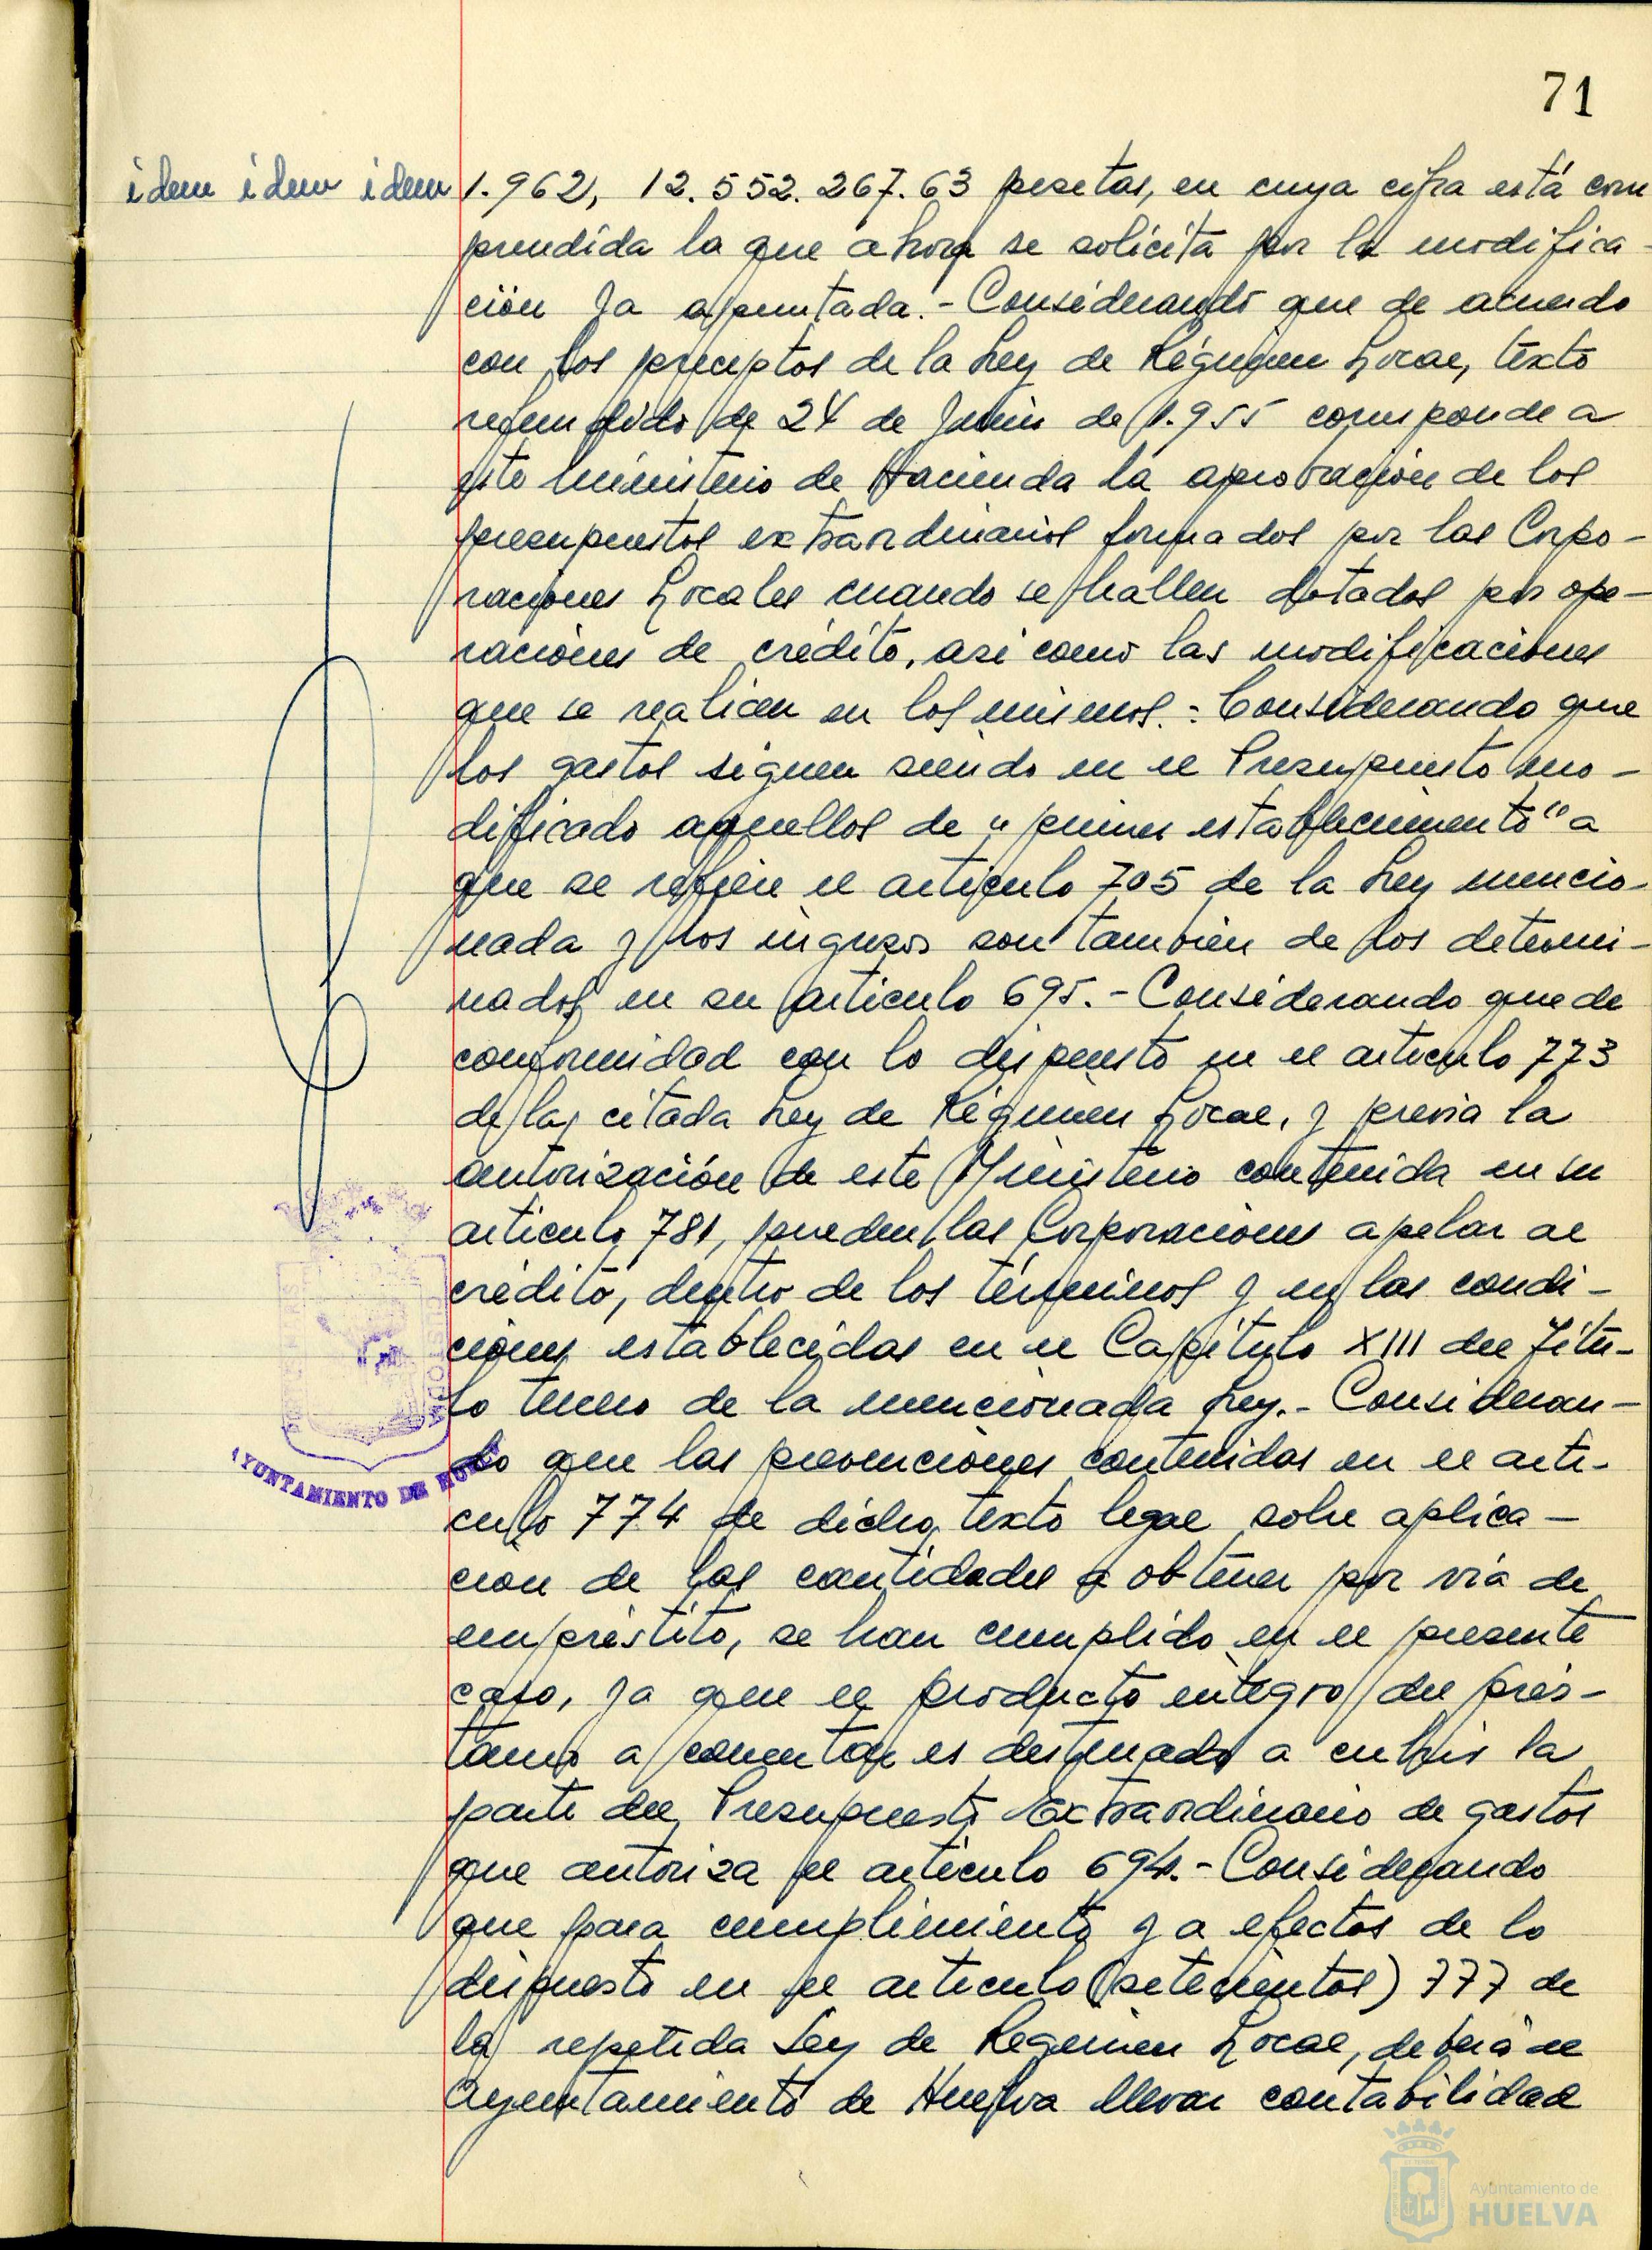 71
idem idem idem 1.962, 12.552.267.63 pesetas, en cuya cifra está com
prendida la que ahora se solicita por la modifica-
ción ya apuntada.- Considerando que de acuerdo
con los preceptos de la Ley de Régimen Local, texto
refundido de 24 de Junio de 1.955 corresponde a
este Ministerio de Hacienda la aprobación de los
presupuestos extraordinarios formados por las Corpo-
raciones Locales cuando se hallen dotados por ope-
raciones de crédito, asi como las modificaciones
que se realicen en los mismos.- Considerando que
los gastos siguen siendo en el Presupuesto mo-
dificado aquellos de "primer establecimiento" a
que se refiere el articulo 705 de la Ley mencio-
nada y los ingresos son tambien de los determi-
nados en su articulo 695.- Considerando que de
conformidad con lo dispuesto en el articulo 773
de la citada Ley de Régimen Local, y previa la
autorización de este Ministerio contenida en su
articulo 781, pueden las Corporaciones apelar al
crédito, dentro de los términos y en las condi-
ciones establecidas en el Capítulo XIII del Títu-
lo tercero de la mencionada Ley.- Consideran-
do que las prevenciones contenidas en el arti-
culo 774 de dicho texto legal sobre aplica-
cion de las cantidades a obtener por via de
empréstito, se han cumplido en el presente
caso, ya que el producto integro del prés-
tamo a concertar es destinado a cubrir la
parte del Presupuesto Extraordinario de gastos
que autoriza el articulo 694.- Considerando
que para cumplimiento y a efectos de lo
dispuesto en el articulo (setecientos) 777 de
la repetida Ley de Regimen Local, deberá el
Ayuntamiento de Huelva llevar contabilidad
AYUNTAMIENTO DE HUELVA
Ayuntamiento de
HUELVA